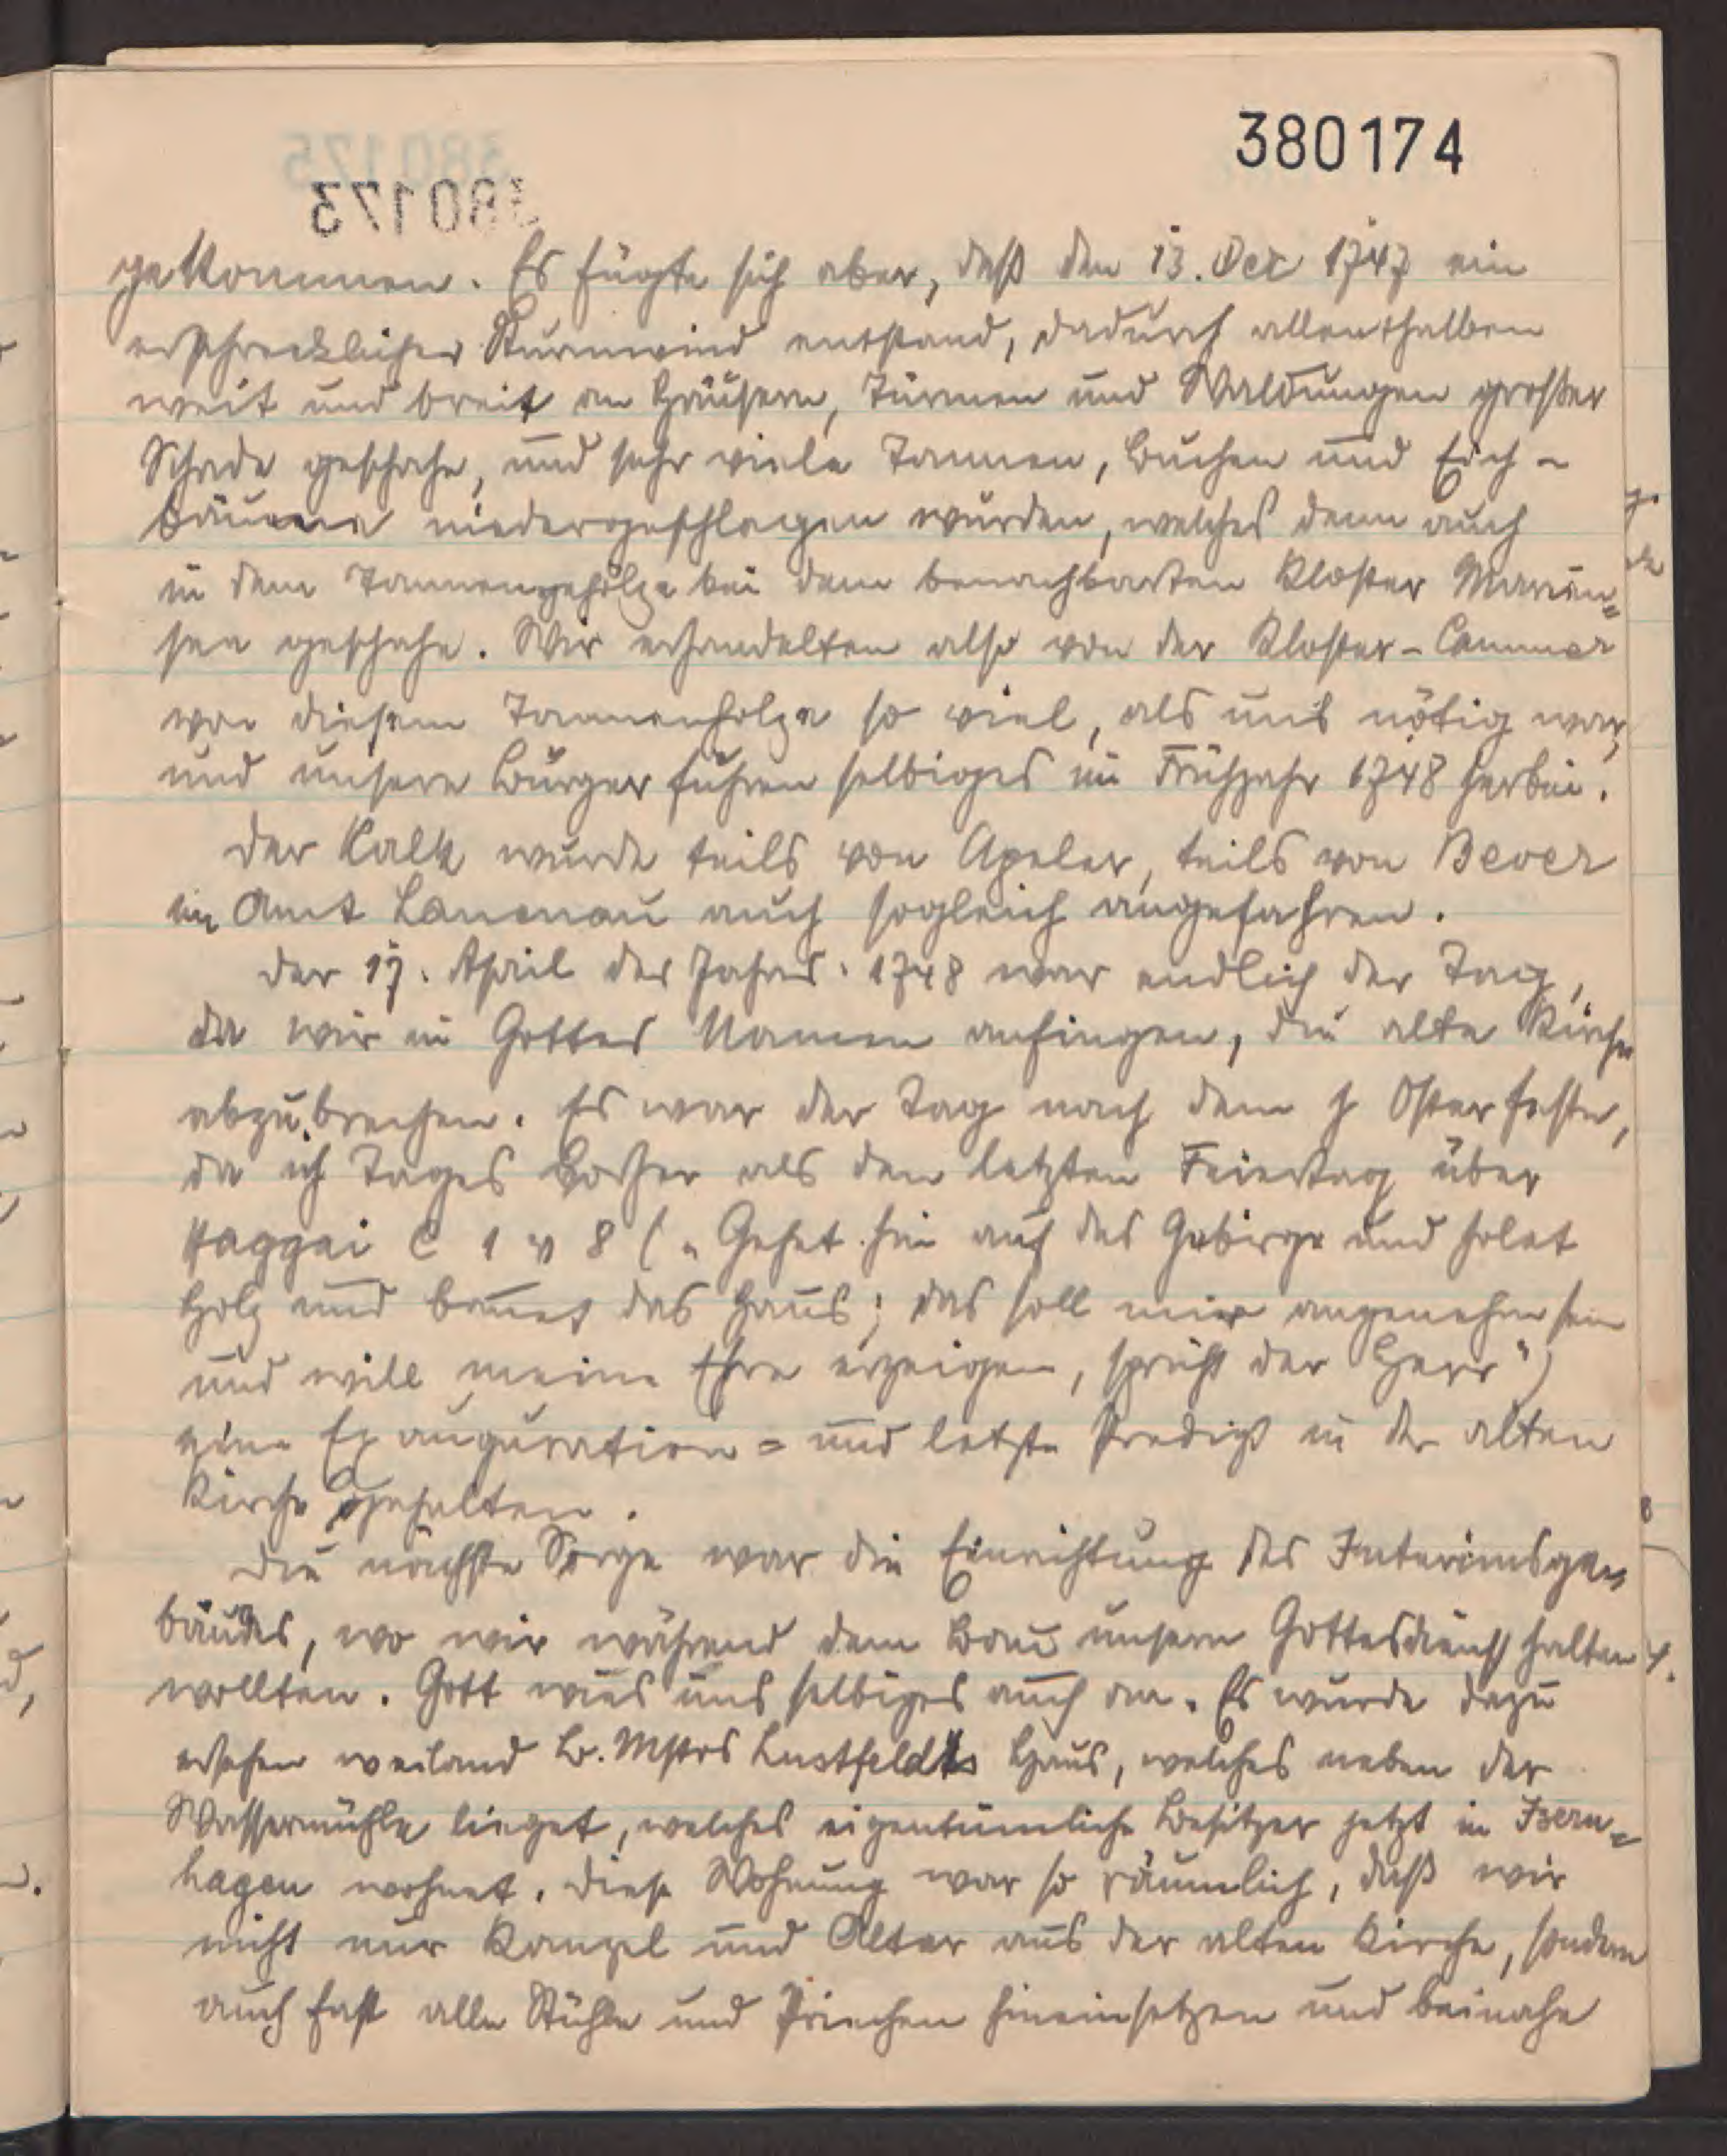 380174
380175
380173
gekommen. Es fügte sich aber, daß den 13. Dec 1747 ein
erschrecklicher Sturmwind entstand, dadurch allenthalben
weit und breit an Häusern, Türmen und Waldungen großer
Schade geschahe, und sehr viele Tannen, Buchen und Eich-
bäume niedergeschlagen wurden, welches denn auch
in dem Tannengehölze bei dem benachbarten Kloster Marien=
see geschahe. Wir erhandelten also von der Kloster-Cammer
von diesem Tannenholze so viel, als uns nötig war,
und unsere Bürger fuhren selbiges im Frühjahr 1748 herbei.
Der Kalk wurde teils von Apeler, teils von Bever
im Amt Lauenau auch sogleich angefahren.
Der 17. April des Jahres 1748 war endlich der Tag,
da wir in Gottes Namen anfingen, die alte Kirche
abzubrechen. Es war der Tag nach dem h Osterfeste,
da ich Tages vorher als den letzten Feiertag über
Haggai C 1 v 8 („Gehet hin auf das Gebirge und holet
Holz und bauet das Haus; das soll mir angenehm sein
und will meine Ehre erzeigen, spricht der Herr")
eine Exauguration= und letzte Predigt in der alten
Kirche gehalten.
Die nächste Sorge war die Einrichtung des Interimsge=
bäudes, wo wir während dem Bau unsern Gottesdienst halten
wollten. Gott wies uns selbiges auch an. Es wurde dazu
ersehen weiland B. Mstrs Lustfeldts Haus, welches neben der
Wassermühle lieget, welches eigentümliche Besitzer jetzt in Isern=
hagen wohnet. Diese Wohnung war so räumlich, daß wir
nicht nur Kanzel und Altar aus der alten Kirche, sondern
auch fast alle Stühle und Priechen hineinsetzen und beinahe